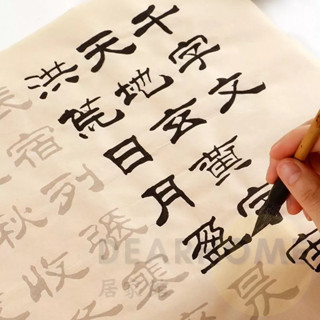 千字文
天地玄黃宇
洪荒日月盈昃
宿列張寒
秋收